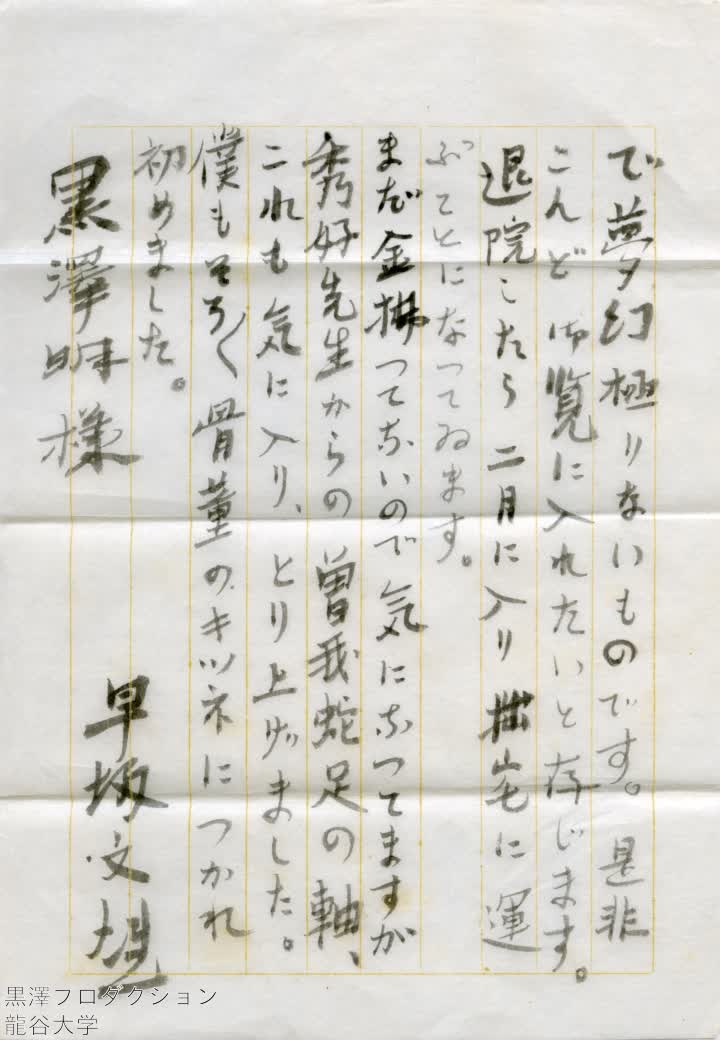 で夢幻極りないものです。是非
こんど御覧に入れたいと存じます。
退院したら二月に入り拙宅に運
ぶことになってゐます。
まだ金拂つてないので気になつてますが
秀好先生からの曽我蛇足の軸、
これも気に入り、とり上げました。
僕もそろ〱骨董のキツネにつかれ
初めました。
早坂文
黒澤明様
黒澤プロダクション
龍谷大学